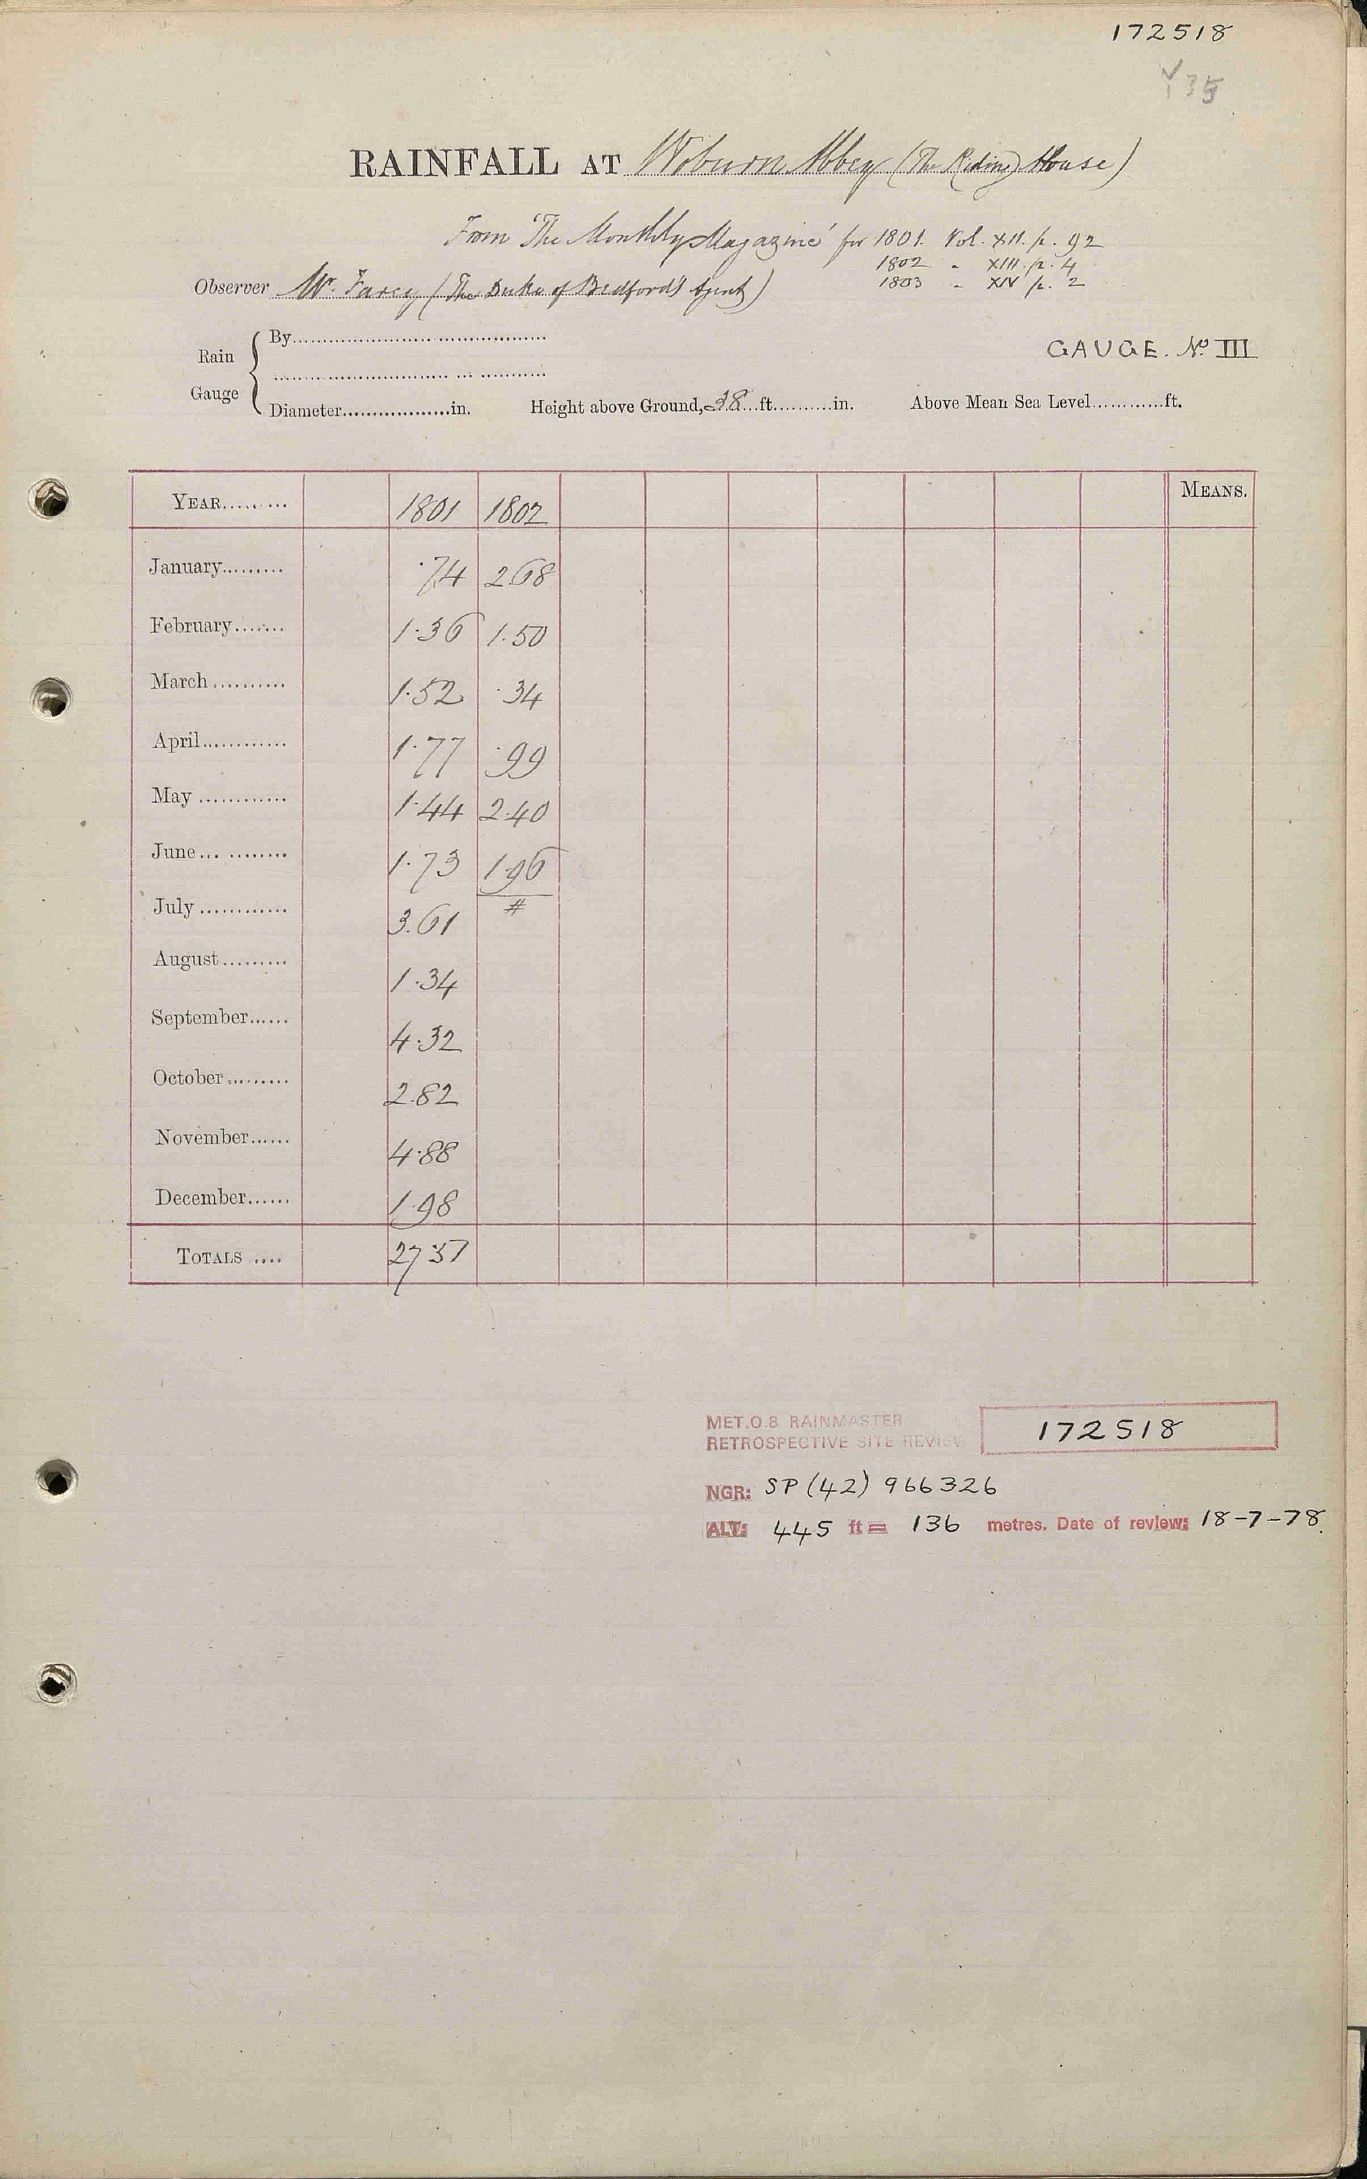 172518
Y35
RAINFALL AT Woburn Abbey (The Riding House)
From 'The Monthly Magazine' for 1801. Vol. XII. p. 92
1802 " XIII. p. 4
1803 " XIV p. 2
Observer Mr. Farey (The Duke of Bedford's Agent)
Rain Gauge { By..........
GAUGE. No. III
Diameter..........in. Height above Ground, 38 ft..........in. Above Mean Sea Level..........ft.
YEAR......... 1801 1802 MEANS.
January......... ·74 2.68
February....... 1.36 1.50
March.......... 1.52 ·34
April............ 1.77 ·99
May ............ 1.44 2.40
June............ 1.73 1.96
July ............ 3.61 #
August......... 1.34
September...... 4.32
October......... 2.82
November...... 4.88
December...... 1.98
TOTALS .... 27 51
MET.O.8 RAINMASTER
RETROSPECTIVE SITE REVIEW 172518
NGR: SP (42) 966326
ALT: 445 ft = 136 metres. Date of review: 18-7-78.